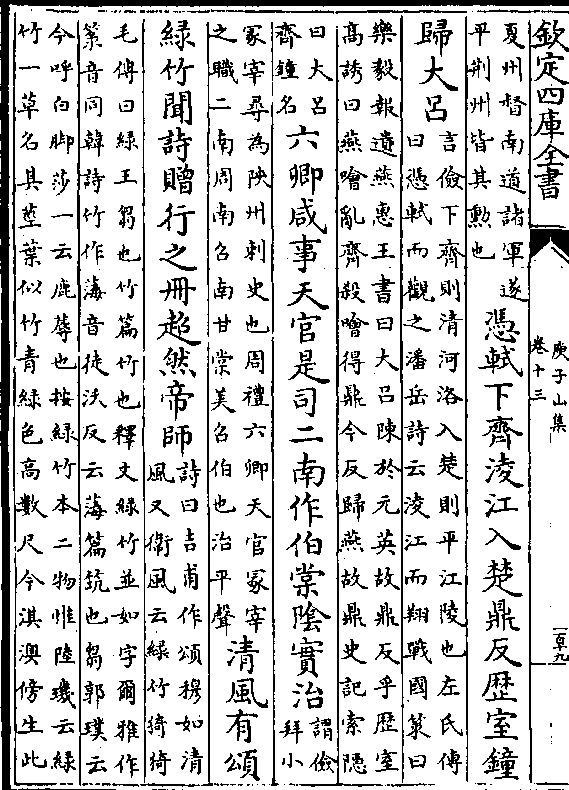 欽定四庫全書
庾子山集
卷十三
夏州督南道諸軍遂
平荆州皆其勲也
憑軾下齊淩江入楚鼎反歴室鐘
歸大呂
言儉下齊則清河洛入楚則平江陵也左氏傳
曰憑軾而觀之潘岳詩云淩江而翔戰國䇿曰
樂毅報遺燕惠王書曰大呂陳於元英故鼎反乎歴室
高誘曰燕噲亂齊殺噲得鼎今反歸燕故鼎史記索隠
曰大呂
齊鐘名
六卿咸事天官是司二南作伯棠陰實治
謂儉
拜小
冡宰尋為陜州刺史也周禮六卿天官冡宰
之職二南周南召南甘棠美召伯也治平聲
清風有頌
緑竹聞詩贈行之冊超然帝師
詩曰吉甫作頌穆如清
風又衛風云緑竹猗猗
毛傳曰緑王芻也竹篇竹也釋文緑竹並如字爾雅作
菉音同韓詩竹作薄音徒沃反云薄篇筑也芻郭璞云
今呼白脚莎一云鹿蓐也按緑竹本二物惟陸璣云緑
竹一草名其莖葉似竹青緑色高數尺今淇澳傍生此